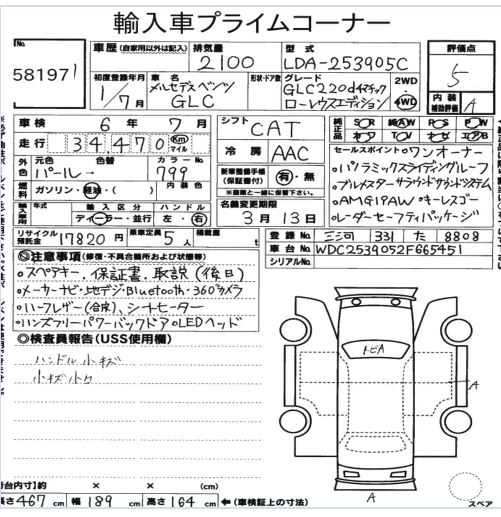 輸入車プライムコーナー
No. 581971
車歴 (自家用以外は記入)
排気量 2100
型式 LDA-253905C
評価点 5
初度登録年月 1/7月
車名 メルセデスベンツ GLC
形状・ドア数
グレード GLC220d4マチック ローレウスエディション
2WD
4WD
内装補助評価 A
車検 6年 7月
走行 34,470 Km マイル
シフト CAT
冷房 AAC
純正品 SR 純AW PS PW
革 TV ナビ エアB
外色 元色 パール 色替 → カラーNo. 799
燃料 ガソリン・軽油・( ) 内装色
新車整備手帳(保証書付) 有・無
※問題と一緒に保管下さい。
輸入車 年式 輸入区分 ディーラー・並行 ハンドル 左・右
名義変更期限 3月13日
セールスポイント ワンオーナー
パノラミックスライディングルーフ
ブルメスターサラウンドサウンドシステム
AMG19AW キーレスゴー
レーダーセーフティパッケージ
リサイクル預託金 17820円 乗車定員 5人 積載量 t
登録No. 三河 331 た 8808
車台No. WDC2539052F665451
シリアルNo.
注意事項 (修復・不具合箇所および状態等)
○スペアキー、保証書、取説(後日)
○メーカーナビ・地デジ・Bluetooth・360°カメラ
○ハーフレザー(合皮)、シートヒーター
○ハンズフリーパワーバックドア ○LEDヘッド
◎検査員報告 (USS使用欄)
ハンドル小キズ
小キズ小凹
トビA
A
A
荷台内寸) 約 × × (cm)
長さ 467 cm 幅 189 cm 高さ 164 cm ←(車検証上の寸法)
スペア